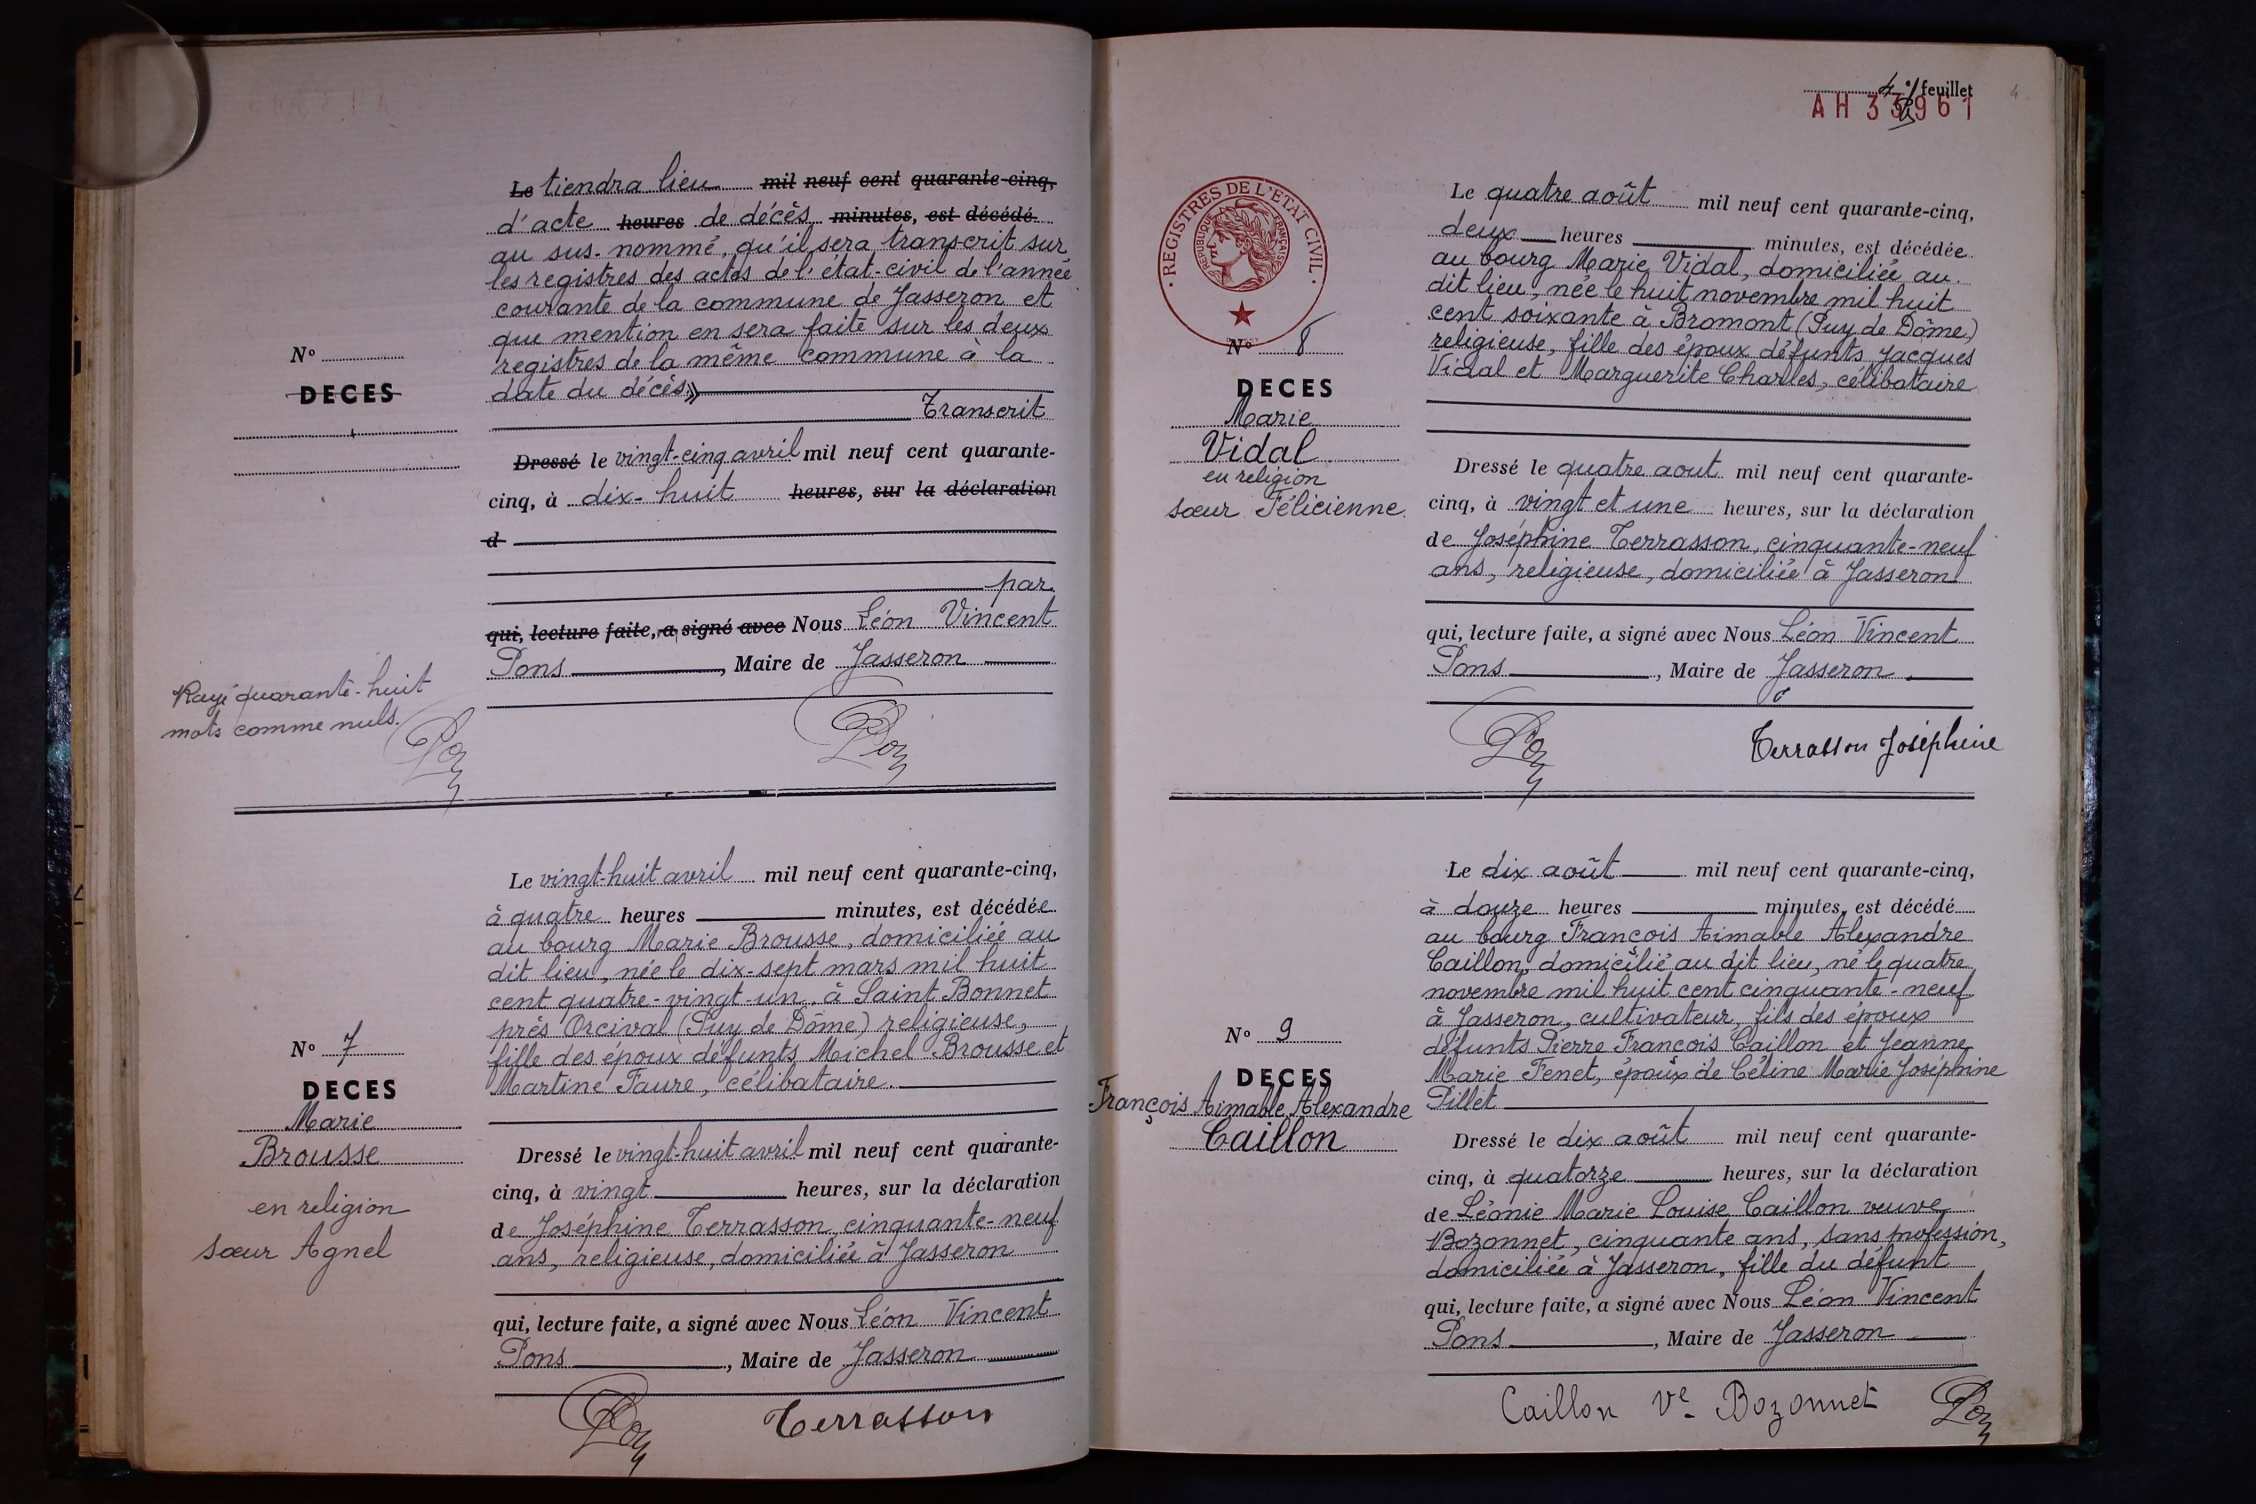 Le tiendra lieu mil neuf cent quarante-cinq,
d'acte heures de décès minutes, est décédé
au sus-nommé, qu'il sera transcrit sur
les registres des actes de l'état-civil de l'année
courante de la commune de Jasseron et
que mention en sera faite sur les deux
registres de la même commune à la
date du décès»
Transcrit
N°
DECES
Dressé le vingt-cinq avril mil neuf cent quarante-
cinq, à dix-huit heures, sur la déclaration
d
par
qui, lecture faite, a signé avec Nous Léon Vincent
Pons, Maire de Jasseron
Rayé quarante-huit
mots comme nuls.
Pons
Pons
Le vingt-huit avril mil neuf cent quarante-cinq,
à quatre heures minutes, est décédée
au bourg Marie Brousse, domiciliée au
dit lieu, née le dix-sept mars mil huit
cent quatre-vingt-un, à Saint Bonnet
près Orcival (Puy de Dôme) religieuse,
fille des époux défunts Michel Brousse et
Martine Faure, célibataire.
N° 7
DECES
Marie
Brousse
en religion
sœur Agnel
Dressé le vingt-huit avril mil neuf cent quarante-
cinq, à vingt heures, sur la déclaration
de Joséphine Terrasson, cinquante-neuf
ans, religieuse, domiciliée à Jasseron
qui, lecture faite, a signé avec Nous Léon Vincent
Pons, Maire de Jasseron
Pons Terrasson
4e feuillet
4
AH 33961
REGISTRES DE L'ETAT CIVIL
REPUBLIQUE FRANÇAISE
Le quatre août mil neuf cent quarante-cinq,
deux heures minutes, est décédée
au bourg Marie Vidal, domiciliée au
dit lieu, née le huit novembre mil huit
cent soixante à Bromont (Puy de Dôme)
religieuse, fille des époux défunts Jacques
Vidal et Marguerite Charles, célibataire
N° 8
DECES
Marie
Vidal
en religion
sœur Félicienne
Dressé le quatre aout mil neuf cent quarante-
cinq, à vingt et une heures, sur la déclaration
de Joséphine Terrasson, cinquante-neuf
ans, religieuse, domiciliée à Jasseron
qui, lecture faite, a signé avec Nous Léon Vincent
Pons, Maire de Jasseron
Pons Terrasson Joséphine
Le dix août mil neuf cent quarante-cinq,
à douze heures minutes, est décédé
au bourg François Aimable Alexandre
Caillon, domicilié au dit lieu, né le quatre
novembre mil huit cent cinquante-neuf
à Jasseron, cultivateur, fils des époux
défunts Pierre François Caillon et Jeanne
Marie Fenet, époux de Céline Marie Joséphine
Pillet
N° 9
DECES
François Aimable Alexandre
Caillon
Dressé le dix août mil neuf cent quarante-
cinq, à quatorze heures, sur la déclaration
de Léonie Marie Louise Caillon veuve
Bozonnet, cinquante ans, sans profession,
domiciliée à Jasseron, fille du défunt
qui, lecture faite, a signé avec Nous Léon Vincent
Pons, Maire de Jasseron
Caillon Ve Bozonnet Pons